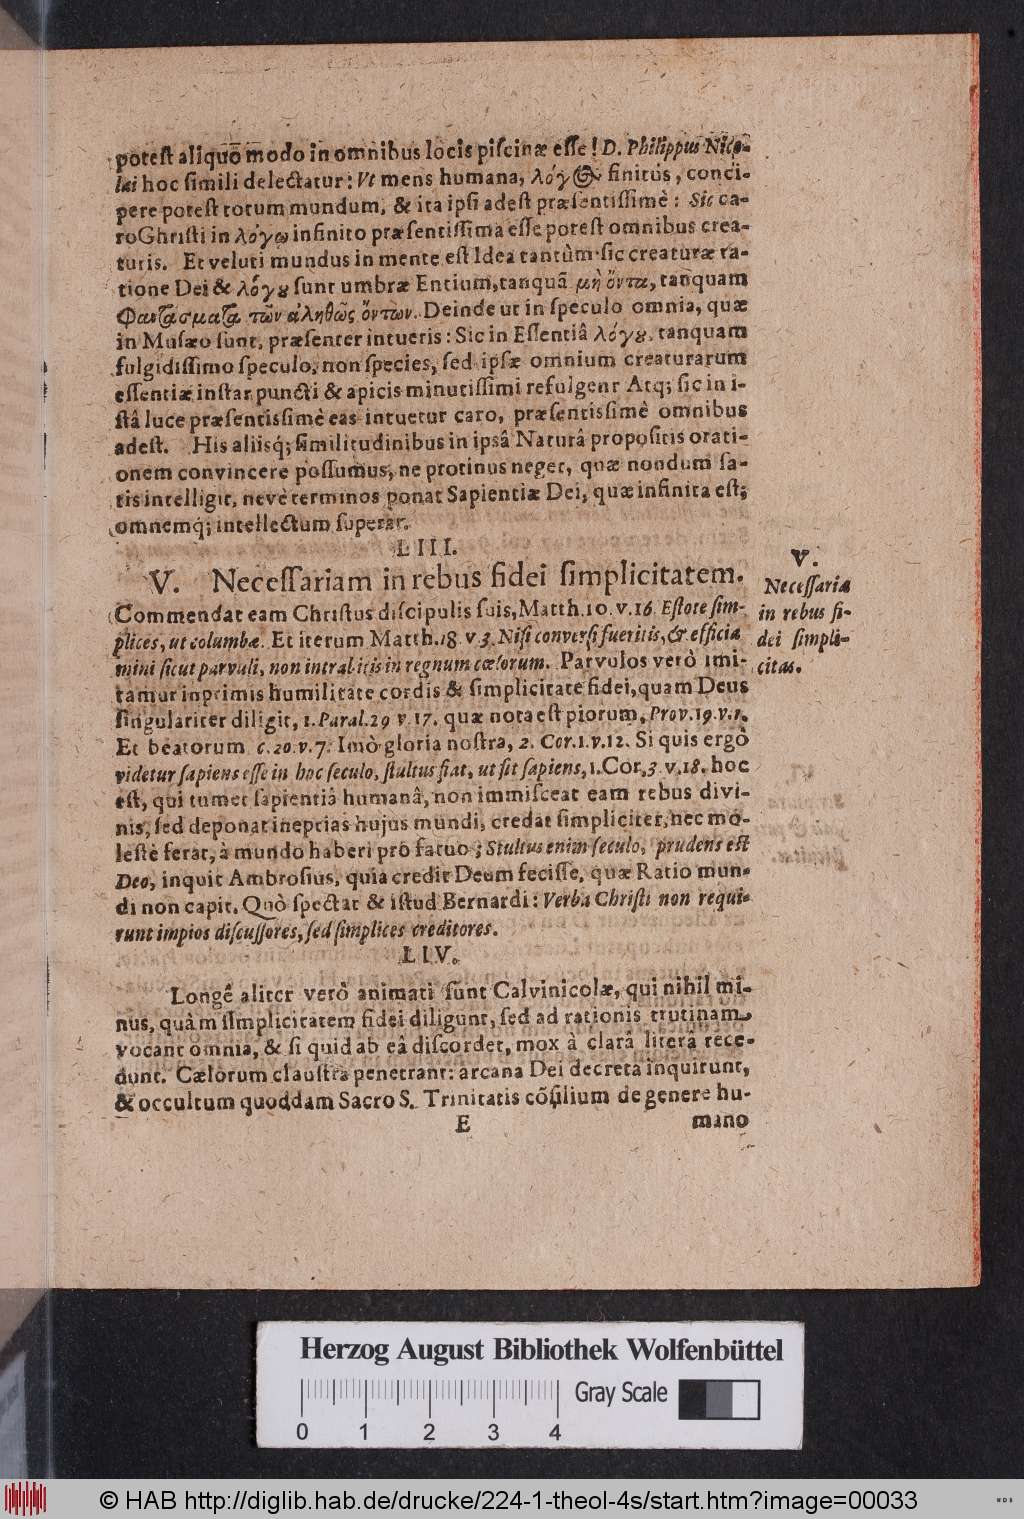 potest aliquo modo in omnibus locis piscinæ esse! D. Philippus Nico-
lai hoc simili delectatur: Ut mens humana, λόγος finitus, conci-
pere potest totum mundum, & ita ipsi adest præsentissimè: Sic ca-
ro Christi in λόγῳ infinito præsentissima esse potest omnibus crea-
turis. Et veluti mundus in mente est Idea tantùm sic creaturæ ra-
tione Dei & λόγȣ sunt umbræ Entium, tanquā μὴ ὄντα, tanquam
Φαντάσματα τῶν ἀληθῶς ὄντων. Deinde ut in speculo omnia, quæ
in Musæo sunt, præsenter intueris: Sic in Essentiâ λόγȣ, tanquam
fulgidissimo speculo, non species, sed ipsæ omnium creaturarum
essentiæ instar puncti & apicis minutissimi refulgent Atq; sic in i-
stâ luce præsentissimè eas intuetur caro, præsentissimè omnibus
adest. His aliisq; similitudinibus in ipsâ Naturâ propositis orati-
onem convincere possumus, ne protinus neget, quæ nondum sa-
tis intelligit, nevè terminos ponat Sapientiæ Dei, quæ infinita est;
omnemq; intellectum superat.
LIII.
V. Necessariam in rebus fidei simplicitatem.
Commendat eam Christus discipulis suis, Matth. 10. v. 16 Estote sim-
plices, ut columbæ. Et iterum Matth. 18. v. 3. Nisi conversi fueritis, & efficia
mini sicut parvuli, non intrabitis in regnum cœlorum. Parvulos verò imi-
tamur inprimis humilitate cordis & simplicitate fidei, quam Deus
singulariter diligit, 1. Paral. 29 v. 17. quæ nota est piorum, Prov. 19. v. 1.
Et beatorum c. 20. v. 7. Imò gloria nostra, 2. Cor. 1. v. 12. Si quis ergò
videtur sapiens esse in hoc seculo, stultus fiat, ut sit sapiens, 1. Cor. 3. v. 18. hoc
est, qui tumet sapientiâ humanâ, non immisceat eam rebus divi-
nis, sed deponat ineptias hujus mundi, credat simpliciter, nec mo-
lestè ferat, à mundo haberi pro fatuo; Stultus enim seculo, prudens est
Deo, inquit Ambrosius, quia credit Deum fecisse, quæ Ratio mun-
di non capit. Quò spectat & istud Bernardi: Verba Christi non requi-
runt impios discussores, sed simplices creditores.
LIV.
Longè aliter verò animati sunt Calvinicolæ, qui nihil mi-
nus, quàm simplicitatem fidei diligunt, sed ad rationis trutinam
vocant omnia, & si quid ab eâ discordet, mox à clarâ literâ rece-
dunt. Cælorum claustra penetrant: arcana Dei decreta inquirunt,
& occultum quoddam Sacro S. Trinitatis cōsilium de genere hu-
E mano
V.
Necessaria
in rebus fi-
dei simpli-
citas.
Herzog August Bibliothek Wolfenbüttel
Gray Scale
0 1 2 3 4
© HAB http://diglib.hab.de/drucke/224-1-theol-4s/start.htm?image=00033
WDB